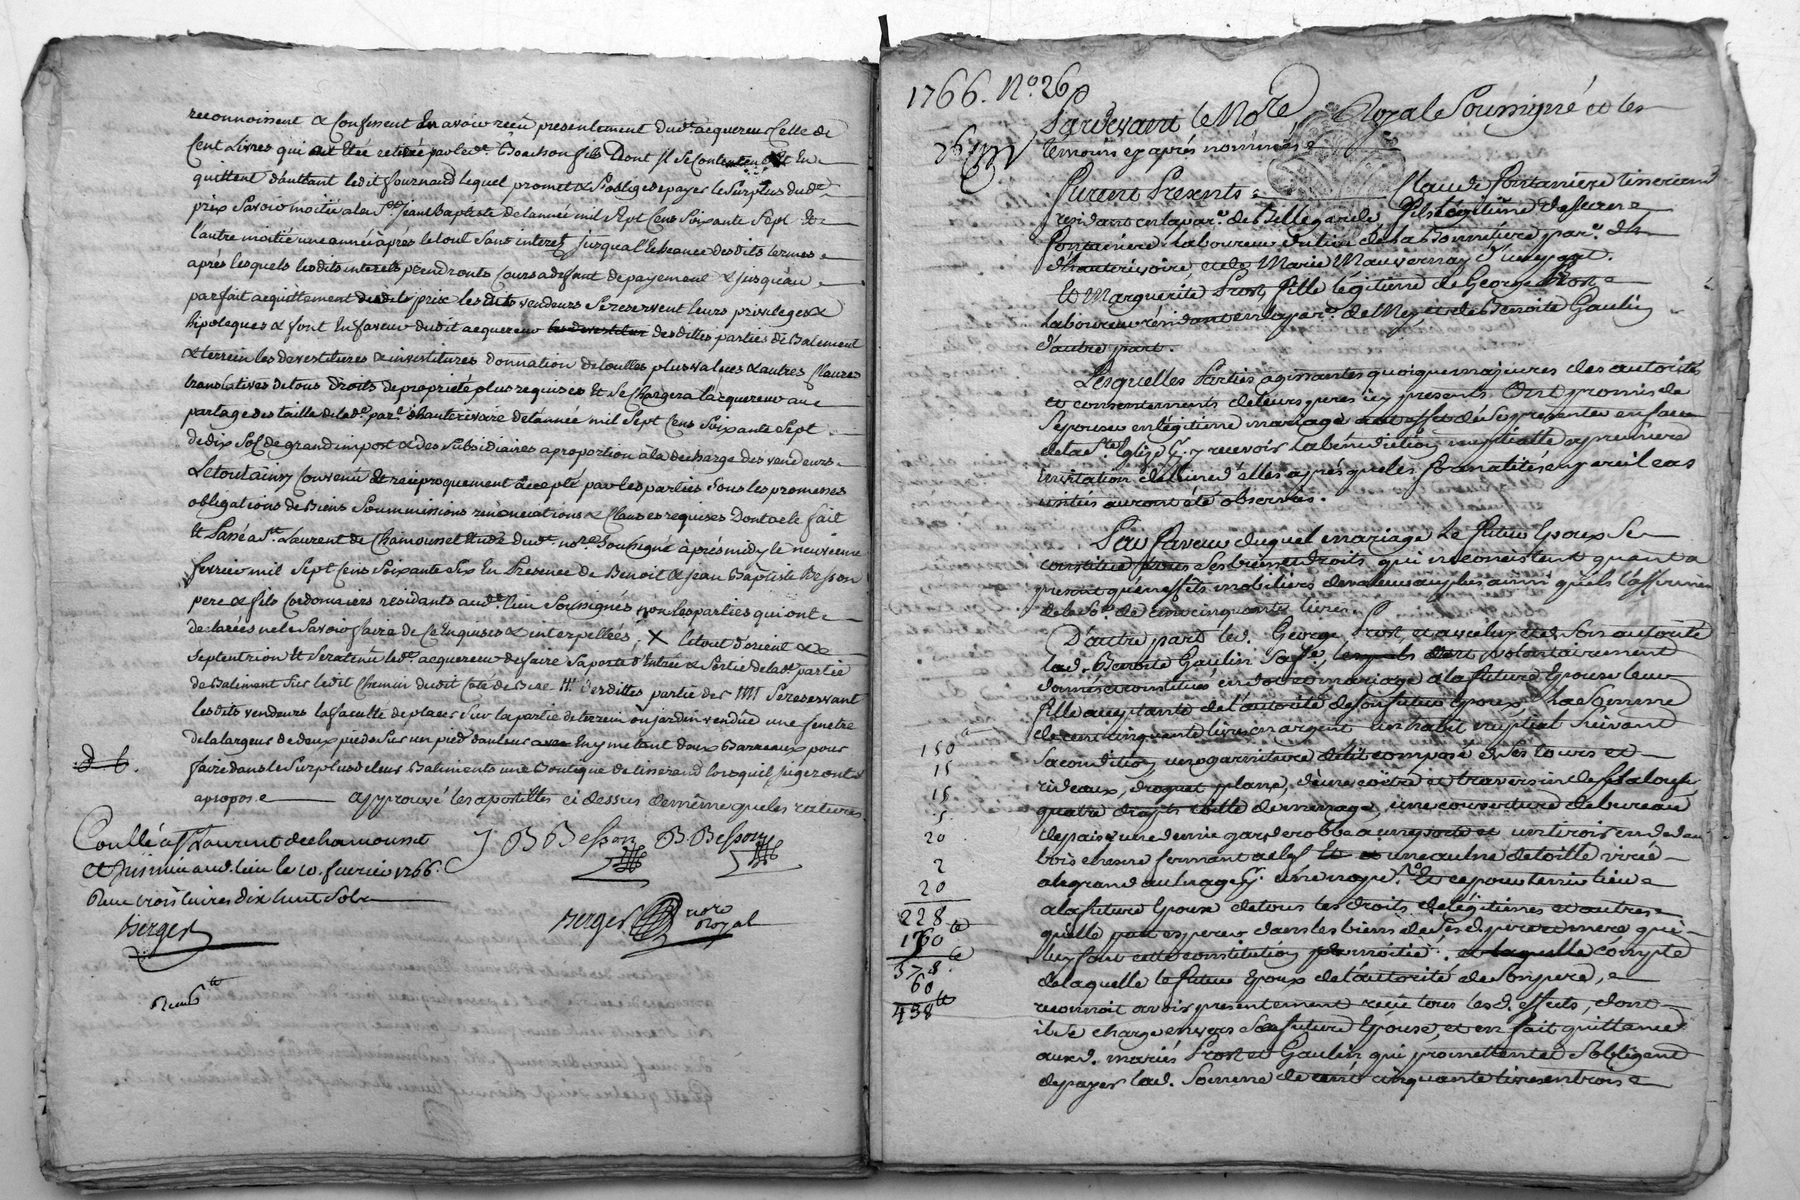 reconnoissent & Confessent En avoir reçu presentement dudt. acquereur Celle de
Cent Livres qui ont Eté retiré par led. Bonchon fils Dont Il Se Contentent Et En
quittent d'auttant ledit fournand lequel promet & S'oblige de payer le Surplus dudt.
prix Savoir moitié a la St. Jean Baptiste de l'année mil Sept Cens Soixante Sept Et
l'autre moitié une année après le tout Sans interet jusqu'a l'Echeance desdits termes
après lesquels lesdits interets prendronts Cours a deffaut de payement & jusqu'au
parfait acquittement dudit prix lesdits vendeurs Se reservent leurs privileges &
hipoteques & font En faveur dudit acquereur des dittes parties de Batiment
& terrein les devestitures & investitures donnation de touttes plus values & autres Clauses
translatives de tous droits de propriété plus requises Et Se Chargera l'acquereur au
partage des taille de lade. pare. d'hauterivoire de l'année mil Sept Cens Soixante Sept
de dix Sols de grand impot & des Subsidiaires a proportion à la decharge des vendeurs
Le tout ainsy Convenû Et reciproquement accepté par les parties Sous les promesses
obligations de Biens Soummissions renonciations & Clauses requises Dont acte fait
Et Passé a St. Laurent de Chamousset Etude dudt. nore. Soussigné après midy le neuvieme
fevrier mil Sept Cens Soixante Six En Presence de Benoit & Jean Baptiste Besson
pere & fils Cordonniers residants aud. lieu Soussignés, non les parties qui ont
declarées ne le Savoir faire de Ce Enquises & interpellées ; X le tout d'orient &
Septentrion Et Sera tenû led. acquereur de faire Sa porte d'Entrée & Sortie de lade. partie
de Batiment Sur ledit Chemin dudit Coté de Bize. # des dittes partie des ### Se reservant
lesdits vendeurs la faculté de placer Sur la partie de terrein ou jardin vendûe une fenetre
de la largeur de deux pieds Sur un pied d'auteur avec En y mettant deux Barreaux pour
faire dans le Surplus de leurs Batiments une Boutique de tisserand lorsqu'il jugeronts
apropos. approuvé les apostilles ci dessus de même que les ratures
d b.
Conllé a St Laurent de chamousset
B Besson B. Besson
Et Insinué aud. lieu le 10. fevrier 1766.
Reçu trois livres dix huit Sols
Berger
Berger nore Royal
Reçu 6tt
1766. No. 26
Pardevant le Nore Royal Soussigné et les
temoins cy après nommés
Furent Presents Claude fontaniere tisserand
residant en la par. de Bellegarde fils légitime de feu
fontaniere laboureur du lieu de la Bonnetiere par. d'
d'hauterivoire et de Marie Mauvernay d'une part.
Et Marguerite Prost fille légitime de George Prost
laboureur résidant en la par. de Meys et de Benoite Gaulin
d'autre part.
Lesquelles Parties agissantes quoique majeures des autorités
et consentements de leurs peres icy presents Ont promis de
Se épouser en légitime mariage a cet effet de Se presenter en face
de la Ste. Eglise pr. y recevoir la bénédiction nuptialle a premiere
invitation de l'un d'elles après que les formalités en pareil cas
usités auront été observées.
En faveur duquel mariage Le futur Epoux Se
constitue tous Ses biens et droits qui ne consistent quant a
présent qu'en effets mobiliers de valeur au plus ainsi qu'il l'affirme
de la Soe. de cent cinquante livres.
D'autre part led. George Prost et avec luy et de Son autorité
lad. Benoite Gaulin Sa fe. volontairement
donnés & constitués en dot et mariage a la future Epouse leur
fille acceptante de l'autorité de Son futur Epoux La Somme
de cent cinquante livres en argent un habit nuptial Suivant
150
Sa condition, une garniture de lit composé de Ses tours et
15
rideaux, droguet plane, d'une coitre et traversin de
15
quatre draps toille de menage, une couverture de bureau
5
depaise une demie garderobbe a un tiroir en dedans
20
bois chesne fermant a clef une aulne de toille
2
a le grand aulnage Et ce pour tenir lieu
20
a la future Epouse de tous les droits de légitimes et autres
228tt
qu'elle peut esperer dans les biens de Ses d. pere et mere qui
150tt
luy font cette constitution par moitié : compte
378.tt
de laquelle le futur Epoux de l'autorité de Son pere,
60
reconnoit avoir presentement reçu tous les d. effets, dont
438tt
il Se charge envers Sa future Epouse, et en fait quittance
auxd. mariés Prost et Gaulin qui promettent et S'obligent
de payer lad. Somme de cent cinquante livres en trois